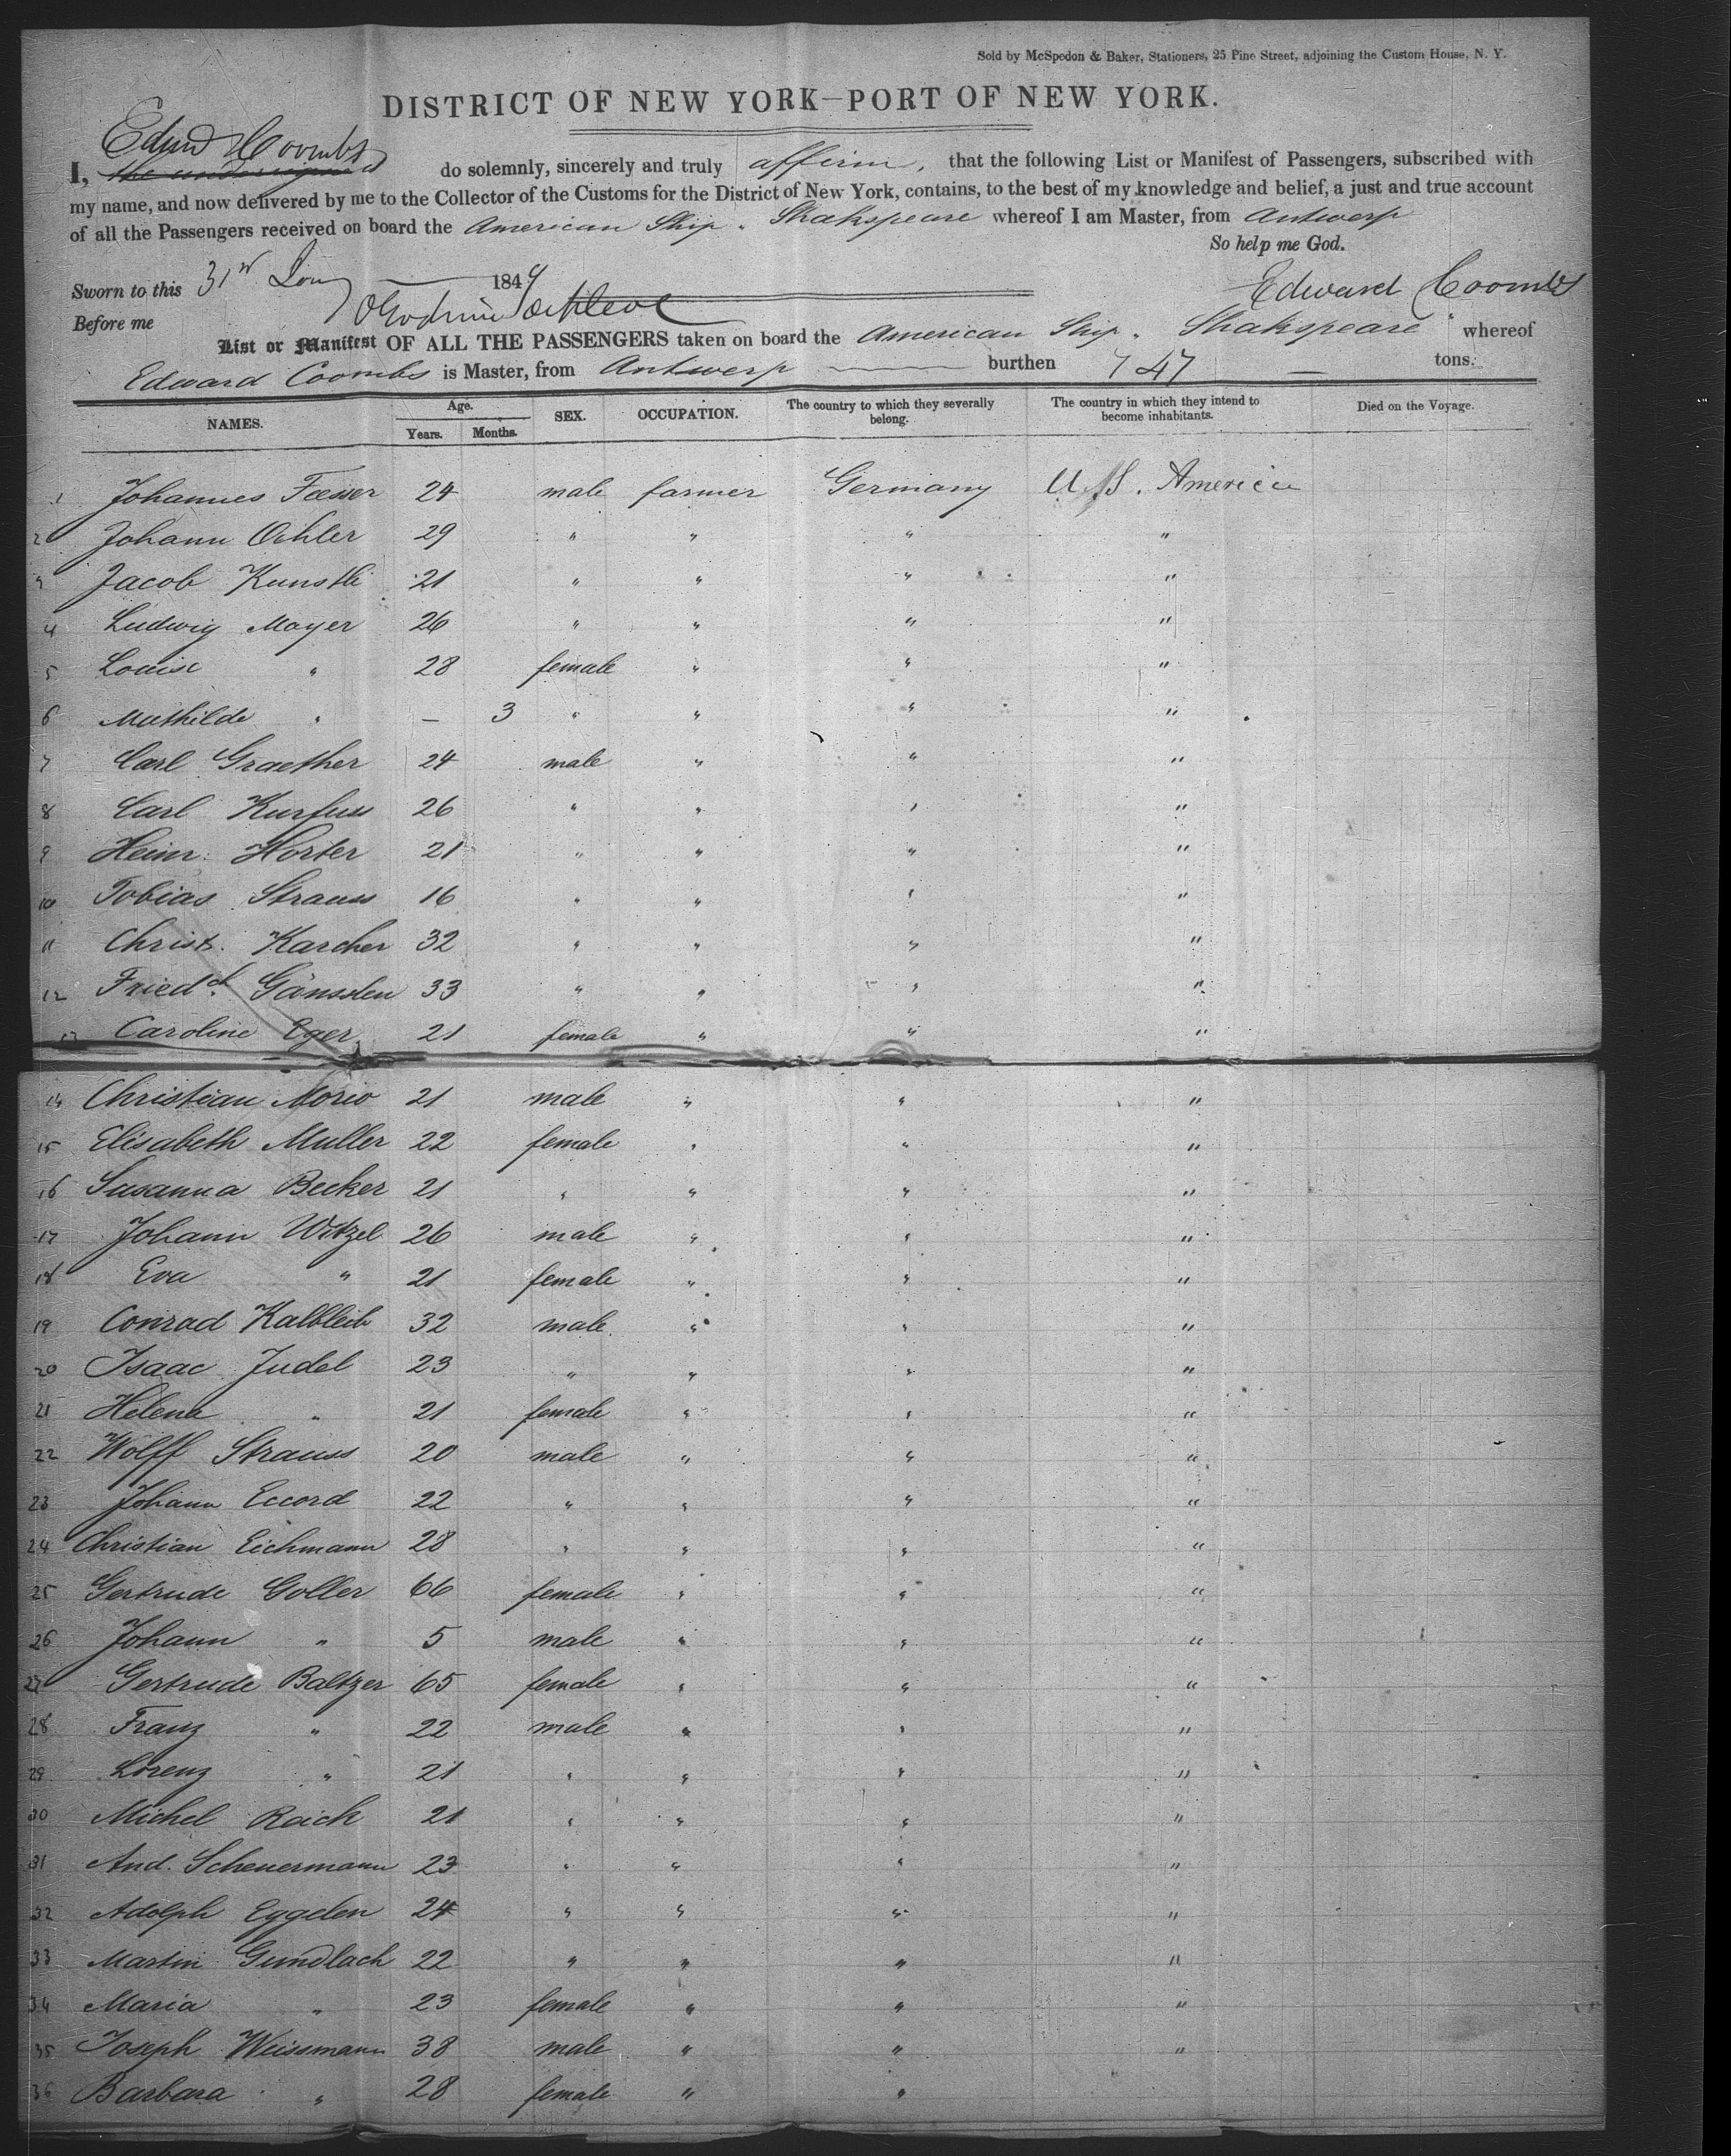 Sold by McSpedon & Baker, Stationers, 25 Pine Street, adjoining the Custom House, N. Y.
DISTRICT OF NEW YORK—PORT OF NEW YORK.
Edwd Coombs
I, the undersigned do solemnly, sincerely and truly affirm, that the following List or Manifest of Passengers, subscribed with
my name, and now delivered by me to the Collector of the Customs for the District of New York, contains, to the best of my knowledge and belief, a just and true account
of all the Passengers received on board the American Ship "Shakspeare whereof I am Master, from Antwerp
So help me God.
Sworn to this 31st 1849 Edward Coombs
Before me
List or Manifest OF ALL THE PASSENGERS taken on board the American Ship "Shakspeare" whereof
Edward Coombs is Master, from Antwerp burthen 747 tons.
NAMES. Age. Years. Months. SEX. OCCUPATION. The country to which they severally belong. The country in which they intend to become inhabitants. Died on the Voyage.
1 Johannes 24 male farmer Germany U.S. America
2 Johann Oehler 29 " " " "
3 Jacob Kunstli 21 " " " "
4 Ludwig Mayer 26 " " " "
5 Louise " 28 female " " "
6 Mathilde " — 3 " " " "
7 Carl Graether 24 male " " "
8 Carl Kurfuss 26 " " " "
9 Heinr. Horter 21 " " " "
10 Tobias Strauss 16 " " " "
11 Christ. Karcher 32 " " " "
12 Friedch Gänsslen 33 " " " "
13 Caroline Eger 21 female " " "
14 Christian Morio 21 male " " "
15 Elisabeth Muller 22 female " " "
16 Susanna Becker 21 " " " "
17 Johann Witzel 26 male " " "
18 Eva " 21 female " " "
19 Conrad Kalbleib 32 male " " "
20 Isaac Judel 23 " " " "
21 Helena " 21 female " " "
22 Wolff Strauss 20 male " " "
23 Johann Eccord 22 " " " "
24 Christian Eichmann 28 " " " "
25 Gertrude Goller 66 female " " "
26 Johann " 5 male " " "
27 Gertrude Baltzer 65 female " " "
28 Franz " 22 male " " "
29 Lorenz " 21 " " " "
30 Michel Raich 21 " " " "
31 And. Scheuermann 23 " " " "
32 Adolph Eggelen 24 " " " "
33 Martin Gundlach 22 " " " "
34 Maria " 23 female " " "
35 Joseph Weissmann 38 male " " "
36 Barbara " 28 female " "